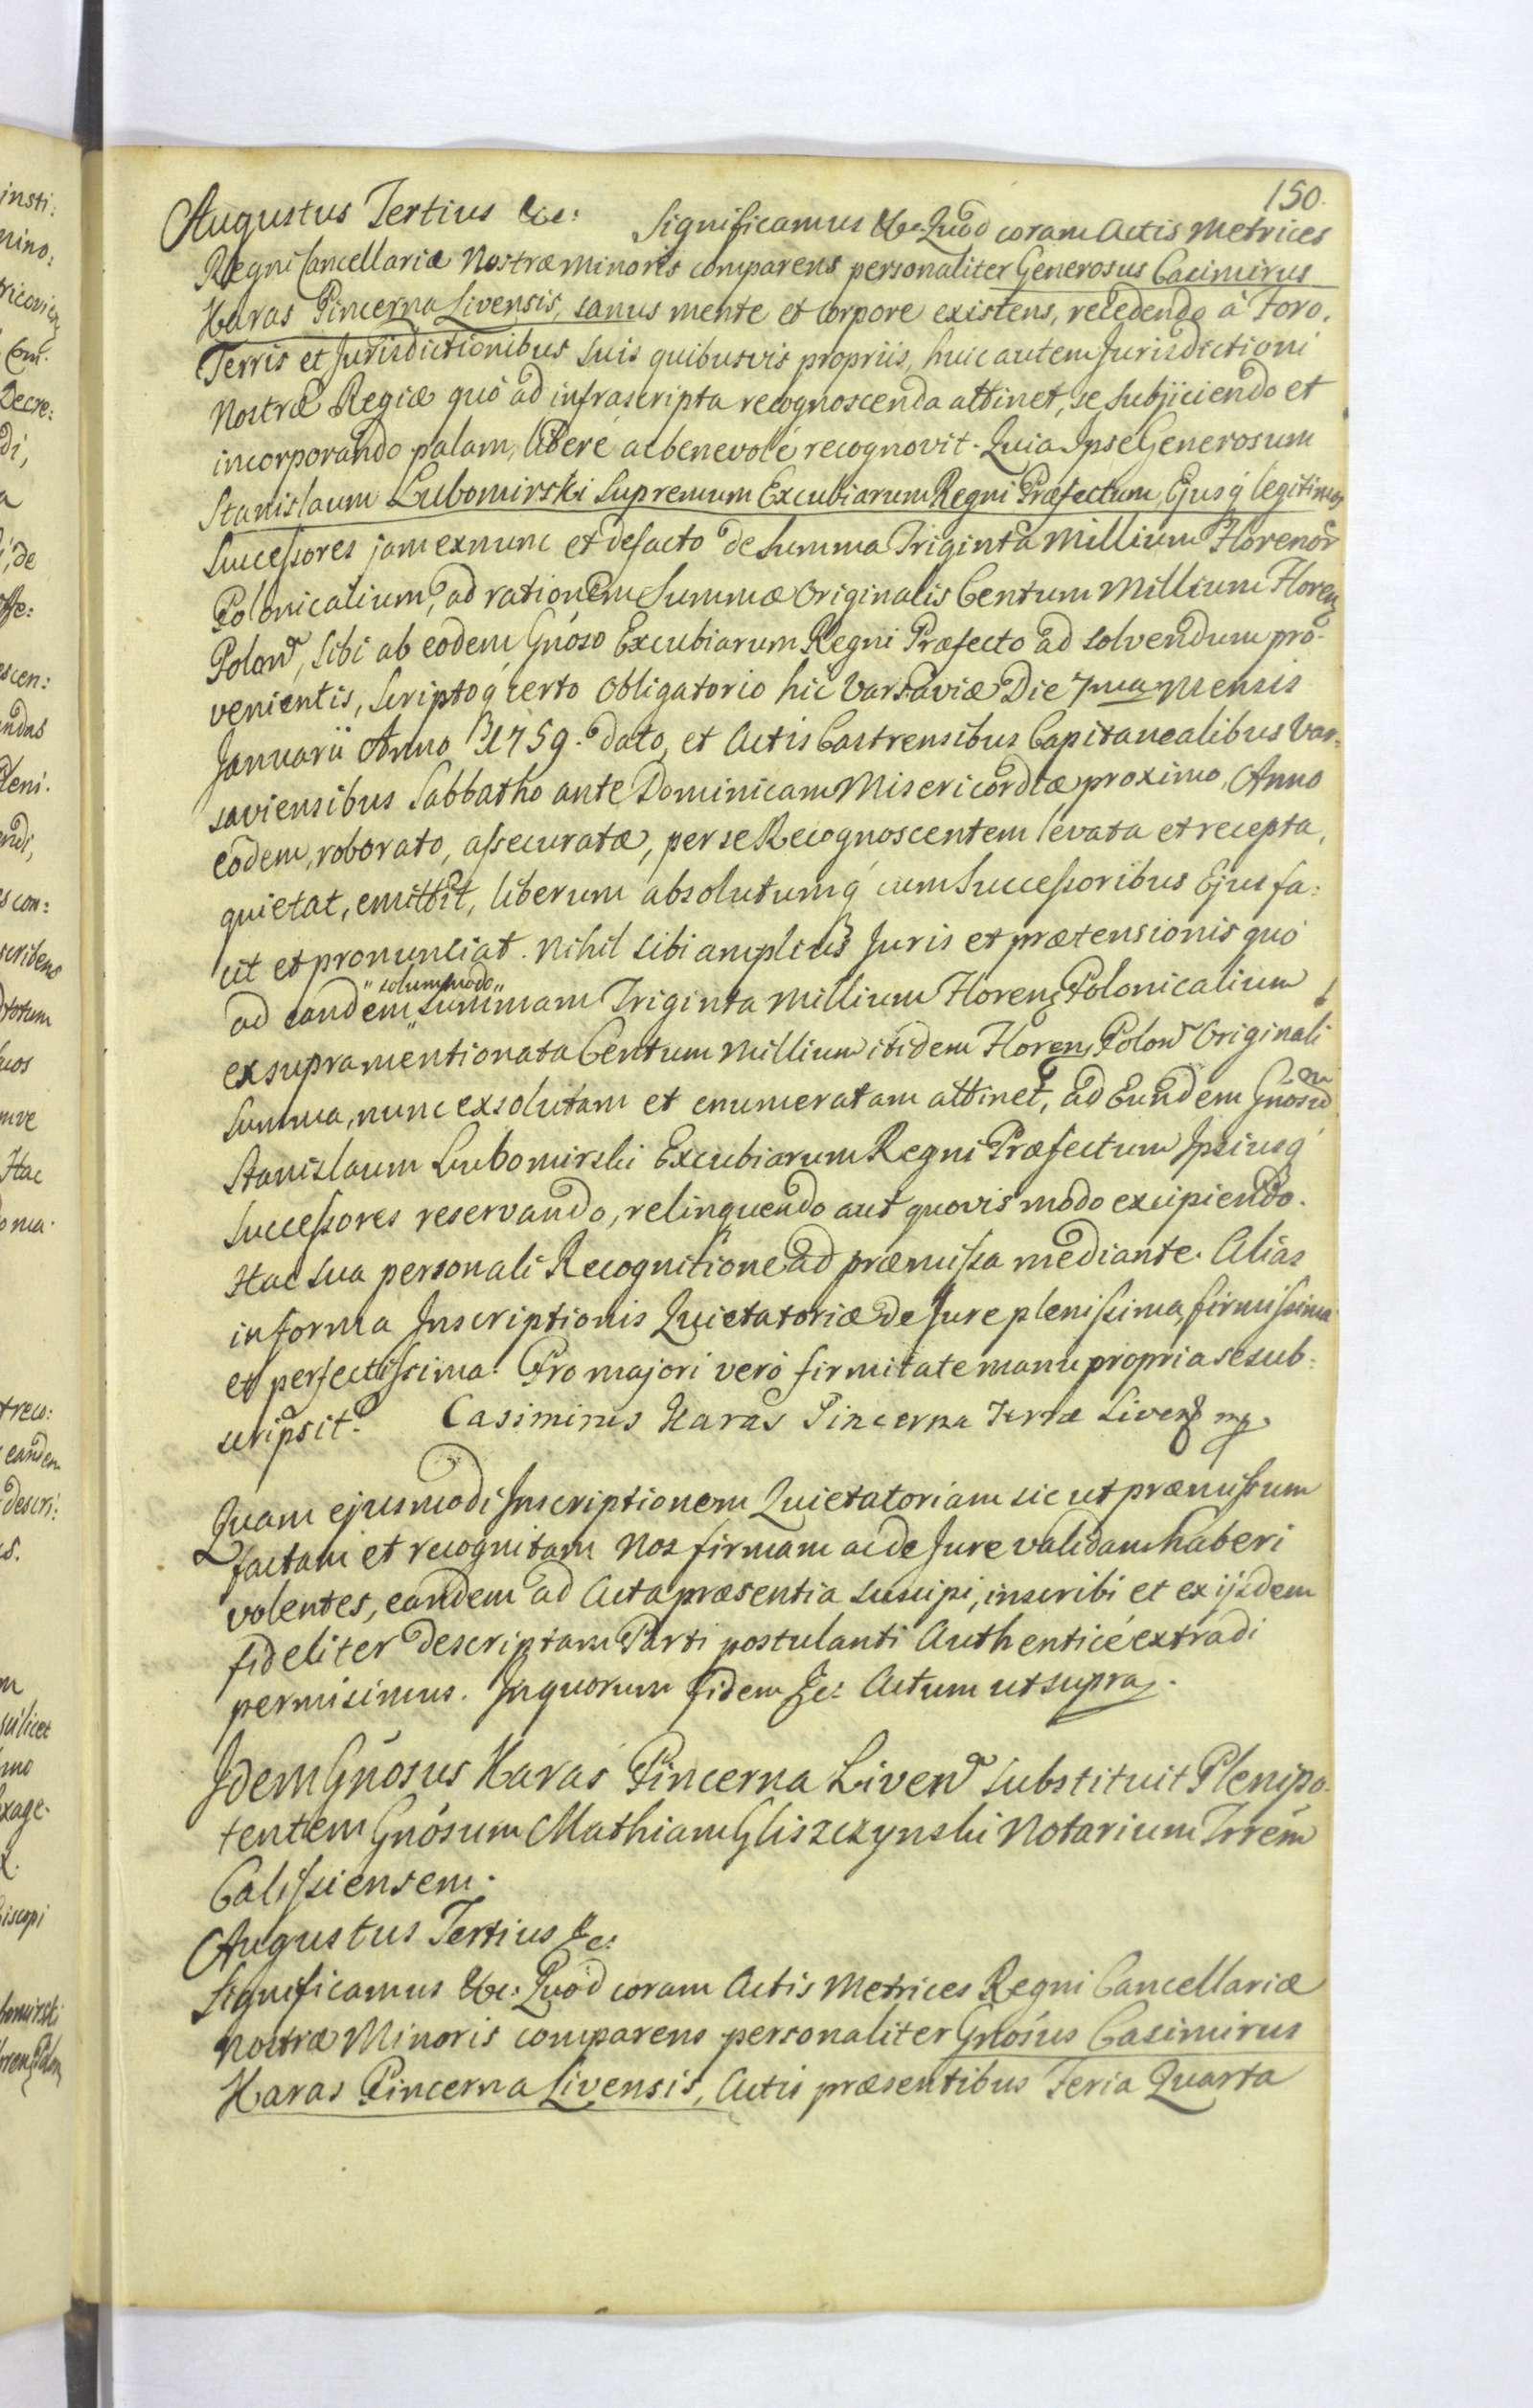 150.
Augustus Tertius &c: Significamus &c: Quod coram Actis Metrices
Regni Cancellariæ Nostræ minoris comparens personaliter Generosus Casimirus
Haras Pincerna Livensis, sanus mente et corpore existens, recedendo à Foro,
Terris et Jurisdictionibus suis quibusvis propriis, huic autem Jurisdictioni
Nostræ Regiæ quò ad infrascripta recognoscenda attinet, se subjiciendo et
incorporando palam, liberé ac benevolé recognovit. Quia Ipse Generosum
Stanislaum Lubomirski Supremum Excubiarum Regni Præfectum, Ejusq́ legitimos
Successores jam exnunc et defacto de Summa Triginta Millium Florenor
Polonicalium, ad rationem Summæ Originalis Centum Millium Floren
Polon, sibi ab eodem Gñoso Excubiarum Regni Præfecto ad solvendum pro-
venientis, Scriptoq́ certo Obligatorio hic Varsaviæ Die 7ma mensis
Januarii Anno 1759. dato, et Actis Castrensibus Capitanealibus Var:
saviensibus Sabbatho ante Dominicam Misericordiæ proximo, Anno
eodem, roborato, assecuratæ, per se Recognoscentem levata et recepta,
quietat, emittit, liberum absolutumq́ cum Successoribus Ejus fa:
cit et pronunciat. Nihil sibi amplius Juris et prætensionis quò
ad eandem "solummodo" Summam Triginta Millium Floren Polonicalium
ex supramentionata Centum Millium itidem Floren Polon Originali
Summa, nunc exsolutam et enumeratam attinet, ad Eundem Gñosum
Stanislaum Lubomirski Excubiarum Regni Præfectum Ipsiusq́
Successores reservando, relinquendo aut quovis modo excipiendo.
Hac sua personali Recognitione ad præmissa mediante. Alias
in forma Inscriptionis Quietatoriæ de Jure plenissima, firmissima
et perfectissima. Pro majori verò firmitate manu propria se sub:
scripsit. Casimirus Haras Pincerna Terræ Livens mp.
Quam ejusmodi Inscriptionem Quietatoriam sic ut præmissum
factam et recognitam Nos firmam ac de Jure validam haberi
volentes, eandem ad Acta præsentia suscipi, inscribi et ex ijsdem
fideliter descriptam Parti postulanti Authenticé extradi
permisimus. In quorum fidem &c: Actum ut supra.
Idem Gñosus Haras Pincerna Liven substituit Plenipo-
tentem Gñosum Mathiam Gliszczynski Notarium Trrem
Calissiensem.
Augustus Tertius &c:
Significamus &c: Quod coram Actis Metrices Regni Cancellariæ
Nostræ Minoris comparens personaliter Gñosus Casimirus
Haras Pincerna Livensis, Actis præsentibus Feria Quarta